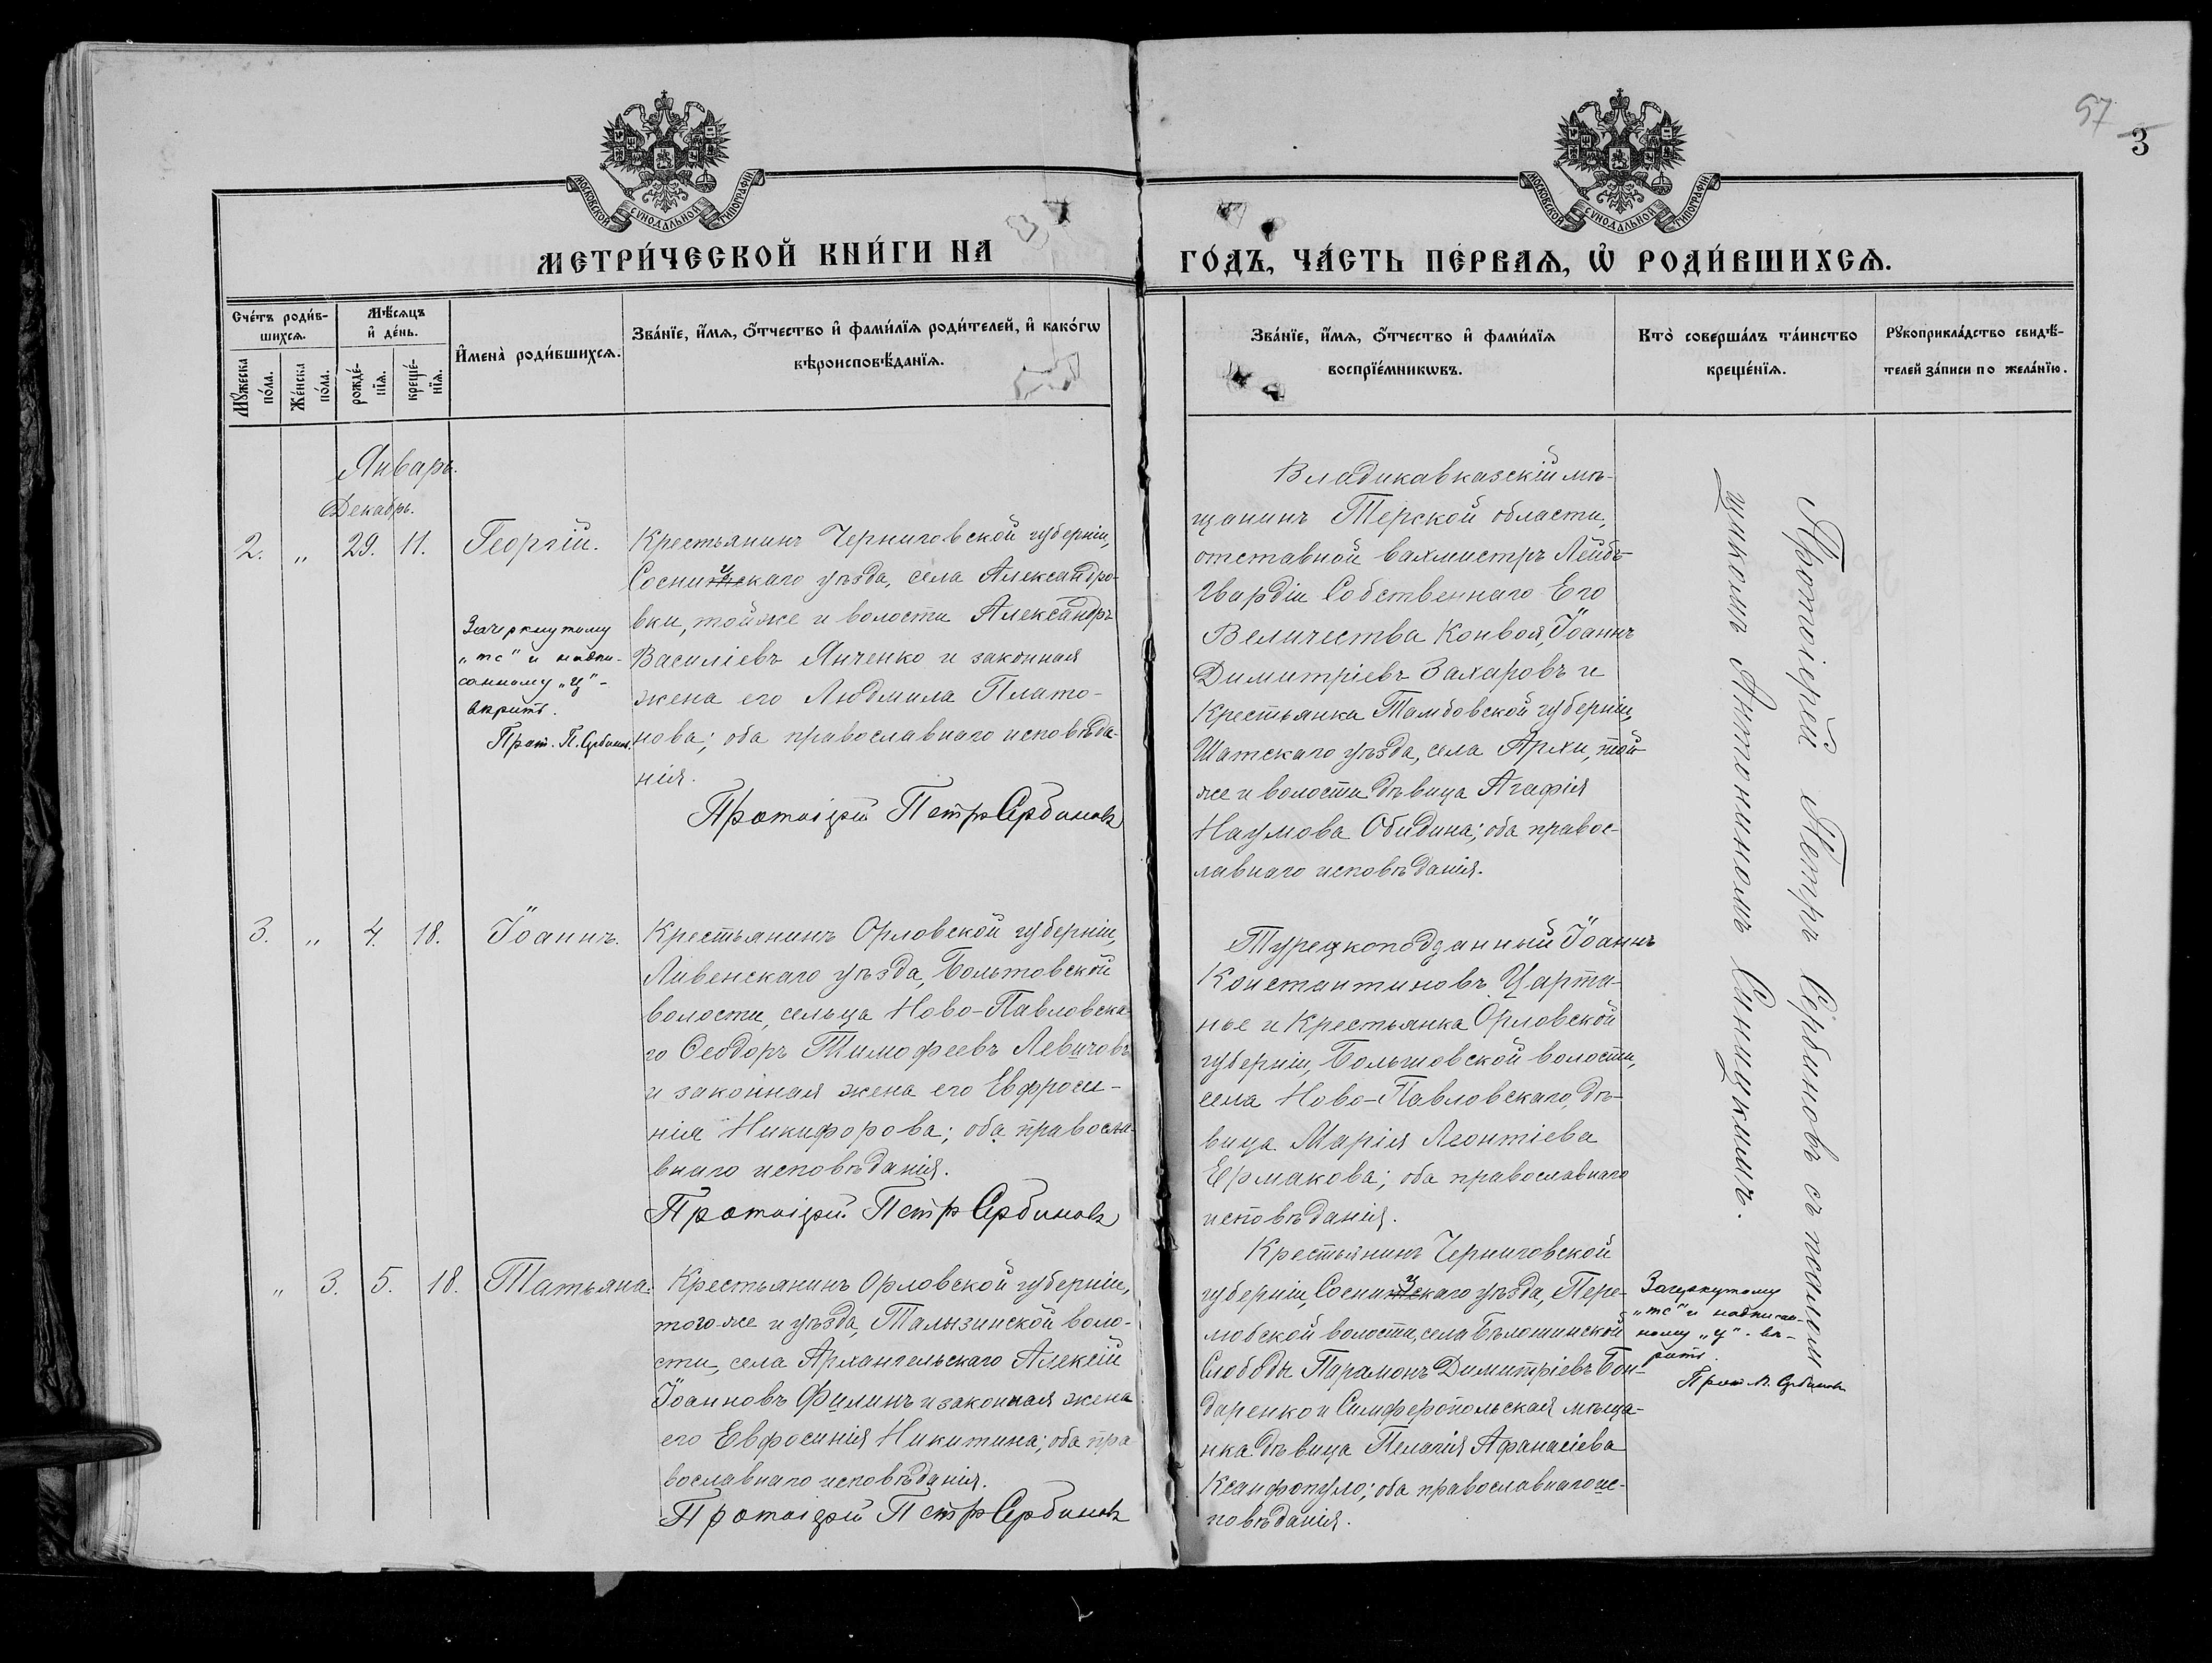 57
3
МОСКОВСКОЙ СѴНОДАЛЬНОЙ ТИПОГРАФІИ
МОСКОВСКОЙ СѴНОДАЛЬНОЙ ТИПОГРАФІИ
МЕТРИ́ЧЕСКОЙ КНИ́ГИ НА
ГО́ДЪ, ЧА́СТЬ ПЕ́РВАѦ, Ѡ҆ РОДИ́ВШИХСѦ.
Сче́тъ роди́в-
шихсѧ.
Мꙋ́жеска по́ла.
Же́нска по́ла.
Мѣ́сѧцъ
и҆ де́нь.
рожде́-
нїѧ.
креще́-
нїѧ.
И҆мена̀ роди́вшихсѧ.
Зва́нїе, и҆́мѧ, ѻ҆́тчество и҆ фами́лїѧ роди́телей, и҆ како́гѡ
вѣроисповѣ́данїѧ.
Зва́нїе, и҆́мѧ, ѻ҆́тчество и҆ фами́лїѧ
воспрїе́мникѡвъ.
Кто̀ соверша́лъ та́инство
креще́нїѧ.
Рꙋкоприкла́дство свидѣ́-
телей за́писи по жела́нїю.
Январь.
Декабрь.
2. „ 29. 11. Георгій.
Крестьянинъ Черниговской губерніи,
Сосницкаго уѣзда, села Александро-
вки, той же и волости Александръ
Василіевъ Янченко и законная
жена его Людмила Плато-
нова; оба православнаго исповѣда-
нія.
Протоіерей Петръ Сербиновъ
Зачеркнутому
„тс“ и надпи-
санному „ц“ -
вѣрить.
Прот. П. Сербинов
Владикавказскій мѣ-
щанинъ Терской области,
отставной вахмистръ Лейбъ-
Гвардіи Собственнаго Его
Величества Конвоя, Іоаннъ
Димитріевъ Захаровъ и
Крестьянка Тамбовской губерніи,
Шатскаго уѣзда, села Ярхи, той
же и волости дѣвица Агафія
Наумова Обидина; оба правос-
лавнаго исповѣданія.
Протоіерей Петръ Сербиновъ съ псалом
щикомъ Антониномъ Синицкимъ.
3. „ 4. 18. Іоаннъ.
Крестьянинъ Орловской губерніи,
Ливенскаго уѣзда, Больтовской
волости, сельца Ново-Павловска-
го Ѳеодоръ Тимофеевъ Левичовъ
и законная жена его Евфроси-
нія Никифорова; оба правосла-
внаго исповѣданія.
Протоіерей Петръ Сербиновъ
Турецкоподданный Іоаннъ
Константиновъ Царта-
нье и Крестьянка Орловской
губерніи, Большовской волости,
села Ново-Павловскаго, дѣ-
вица Марія Леонтіева
Ермакова; оба православнаго
исповѣданія.
„ 3. 5. 18. Татьяна.
Крестьянинъ Орловской губерніи,
того же и уѣзда, Талызинской воло-
сти, села Архангельскаго Алексій
Іоанновъ Филинъ и законная жена
его Евфосинія Никитина; оба пра
вославнаго исповѣданія.
Протоіерей Петръ Сербиновъ
Крестьянинъ Черниговской
губерніи, Сосницкаго уѣзда, Пере-
любской волости, села Бѣлошинской
Слободы Парамонъ Димитріевъ Бон-
даренко и Симферопольская мѣща-
нка дѣвица Пелагія Аѳанасіева
Ксанфопуло; оба православнаго ис-
повѣданія.
Зачеркнутому
„тс“ и надписан-
ному „ц“ - вѣ-
рить.
Прот. П. Сербиновъ